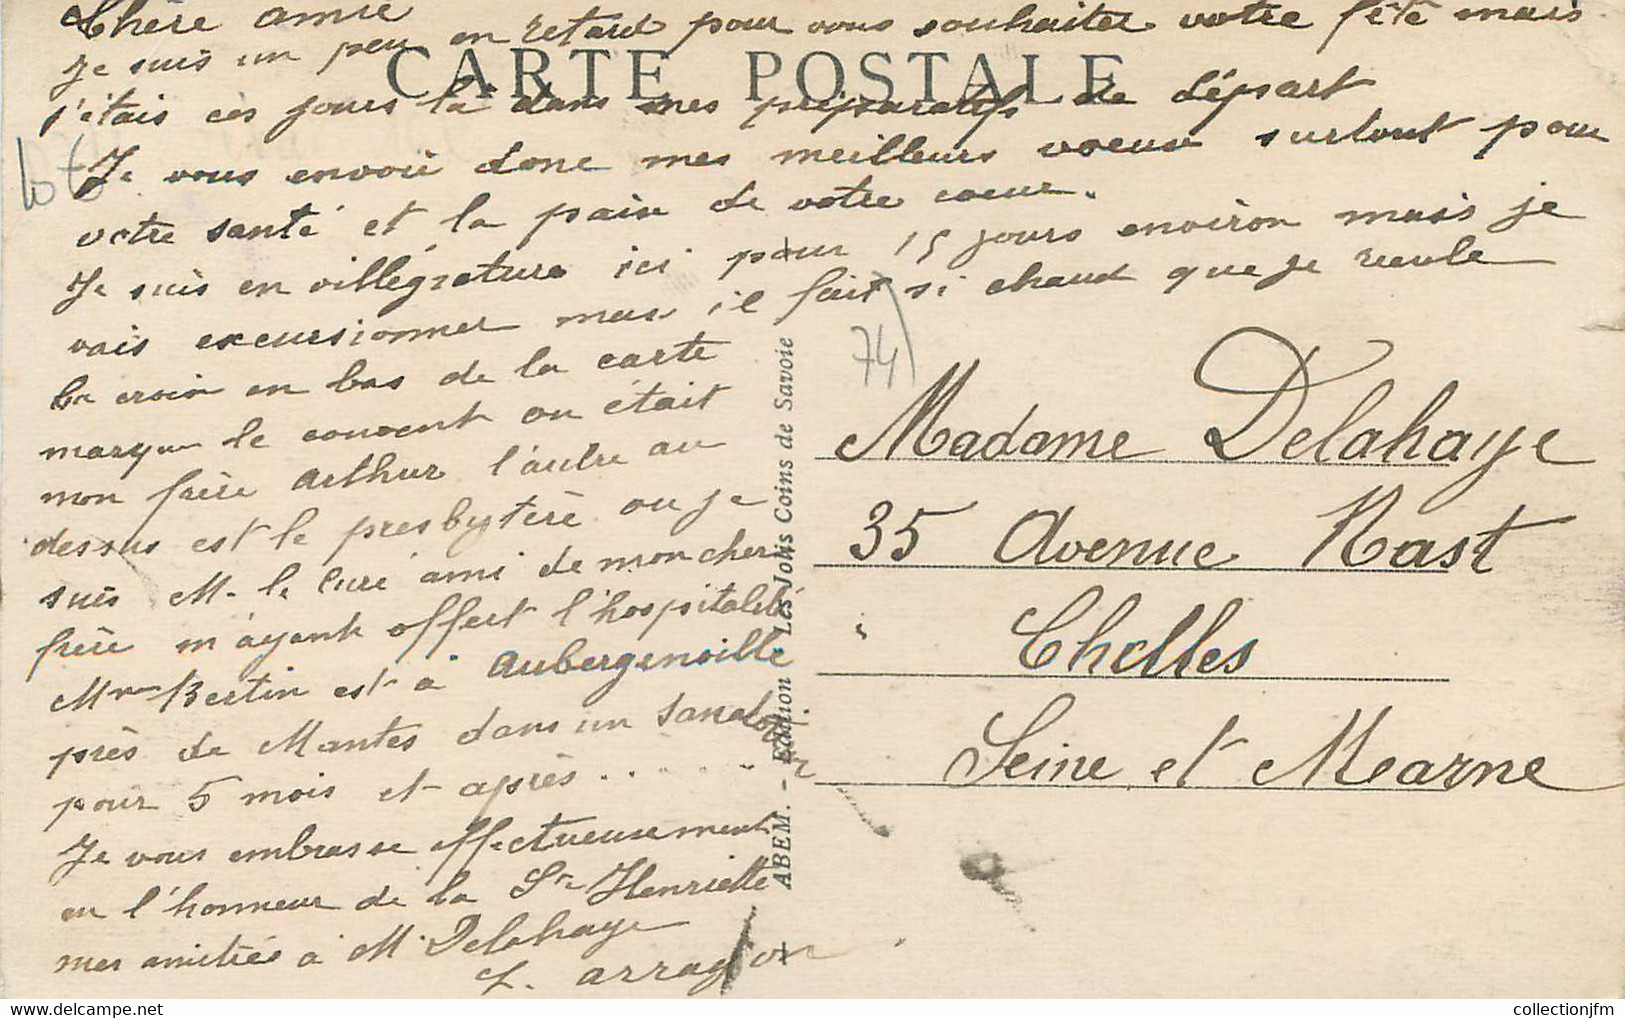 Chère amie
je suis un peu en retard pour vous souhaiter votre fête mais
CARTE POSTALE
j'étais ces jours là dans mes préparatifs de départ
Je vous envoie donc mes meilleurs voeux surtout pour
votre santé et la paix de votre coeur.
Je suis en villégiature ici pour 15 jours environ mais je
vais excursionner mais il fait si chaud que je recule
la croix en bas de la carte
marque le couvent ou était
mon frère Arthur l'autre au
dessus est le presbytère ou je
suis M. le Curé ami de mon cher
frère m'ayant offert l'hospitalité
Mme Bertin est à Aubergenville
près de Mantes dans un
pour 5 mois et après . . . . .
Je vous embrasse affectueusement
en l'honneur de la Ste Henriette
mes amitiés à M. Delahaye
L. Arragon
74
ABEM. - Edition Les Jolis Coins de Savoie
Madame Delahaye
35 Avenue Rast
Chelles
Seine et Marne
collectionjfm